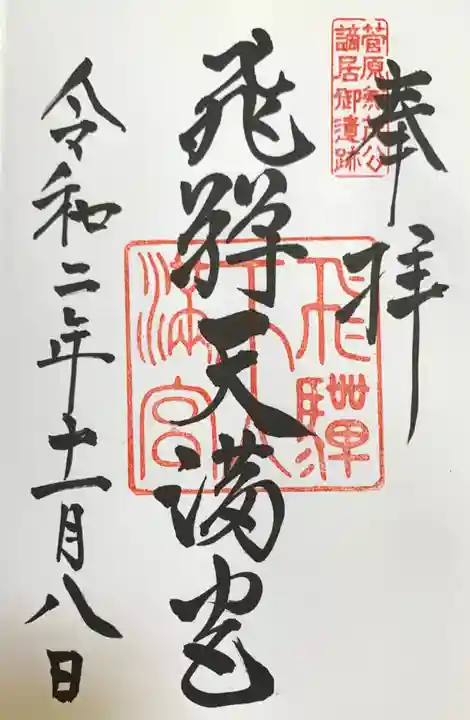 奉拝
菅原兼茂公
謫居御遺跡
飛騨天満宮
飛騨
天満宮
令和二年十一月八日